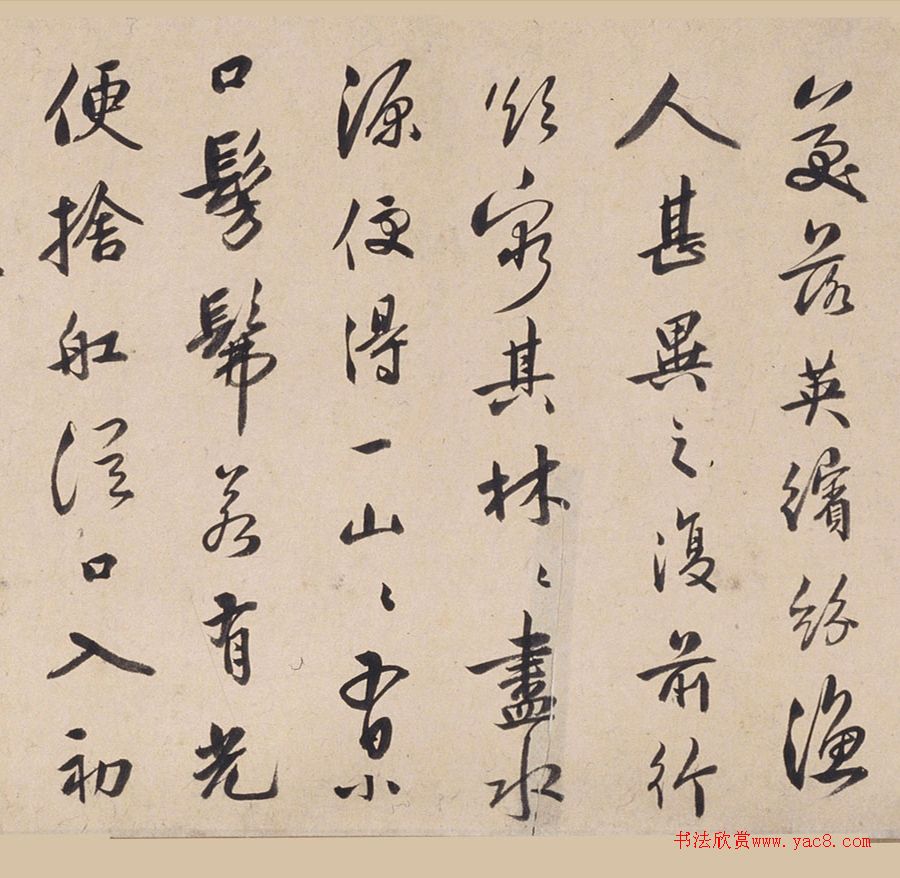 美落英繽紛漁
人甚異之復前行
欲窮其林〻盡水
源便得一山〻有小
口髣髴若有光
便捨舩從口入初
书法欣赏www.yac8.com